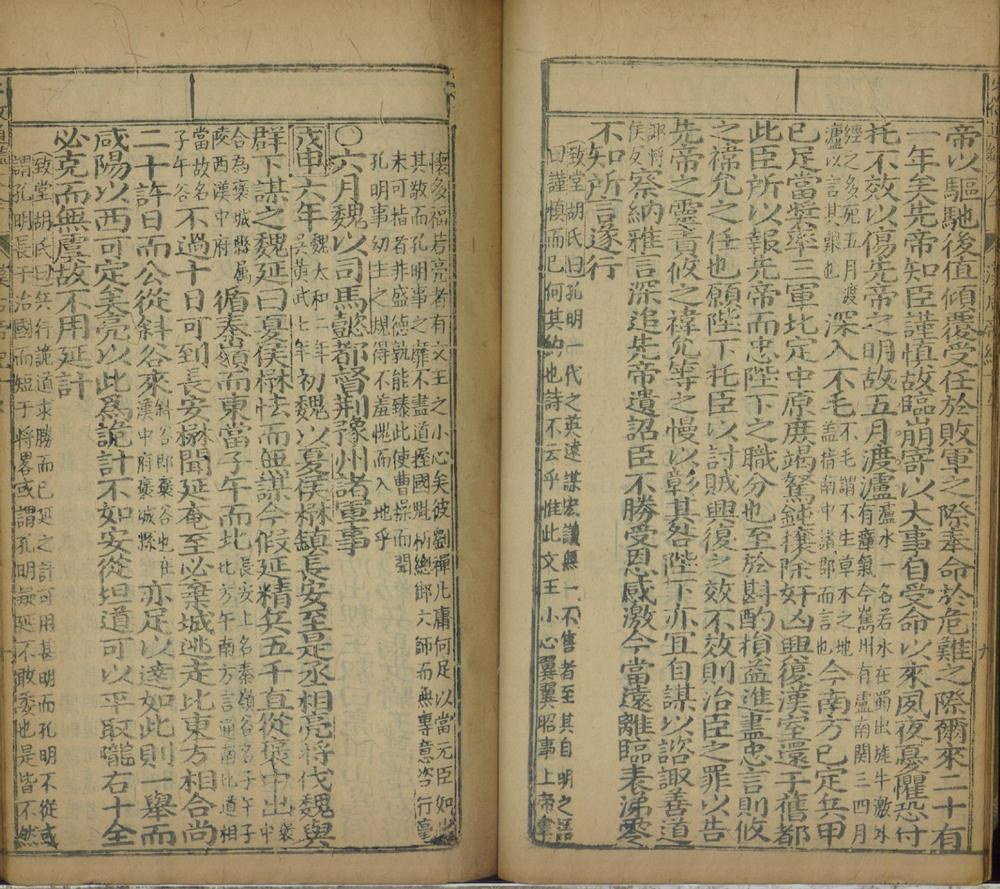 帝以驅馳後值傾覆受任於敗軍之際奉命於危難之際爾來二十有
一年矣先帝知臣謹慎故臨崩寄以大事自受命以來夙夜憂懼恐付
托不效以傷先帝之明故五月渡瀘瀘水一名若水在蜀出旄牛激外
有瘴氣今嶲州有瀘南関三四月
經之多死五月渡
瀘以言其艱也深入不毛不毛謂不生草木之地
盖指南中諸郡而言也今南方已定兵甲
已足當奨率三軍北定中原庶竭駑鈍攘除奸凶興復漢室還于舊都
此臣所以報先帝而忠陛下之職分也至於斟酌損益進盡忠言則攸
之禕允之任也願陛下托臣以討賊興復之效不效則治臣之罪以告
先帝之靈責攸之禕允等之慢以彰其咎陛下亦宜自謀以諮諏善道
諏將
侯反察納雅言深追先帝遺詔臣不勝受恩感激今當遠離臨表涕零
不知所言遂行
致堂胡氏曰孔明一代之英逺謀宏議無一不售者至其自明之語
曰謹慎而已何其約也詩不云乎惟此文王小心翼翼昭事上帝聿
懷多福若亮者有文王之小心矣彼劉禪凡庸何足以當元臣如此
其敬而孔明事之靡不盡道握國魁柄總郷六師而無專意咨行毫
末可指者并盛德孰能臻此使曹操而聞
孔明事幼主之規得不羞愧而入地乎
○六月魏以司馬懿都督荆豫州諸軍事
戊申六年魏太和二年
吳黃武七年初魏以夏侯楙鎮長安至是丞相亮將伐魏與
群下謀之魏延曰夏侯楙怯而無謀今假延精兵五千直從褒中出褒
中
合為褒城縣屬
陜西漢中府循秦嶺而東當子午而北長安上名秦嶺谷名子午子
北方午南方言通南北道相
當故名
子午谷不過十日可到長安楙聞延奄至必棄城逃走比東方相合尚
二十許日而公從斜谷來斜谷即褒谷也在
漢中府褒城縣亦足以達如此則一舉而
咸陽以西可定矣亮以此爲詭計不如安從坦道可以平取隴右十全
必克而無虞故不用延計
致堂胡氏曰兵行詭道求勝而已延之計可用甚明而孔明不從或
謂孔明長于治國而短于將畧或謂孔明疑延不敢委也是皆不然